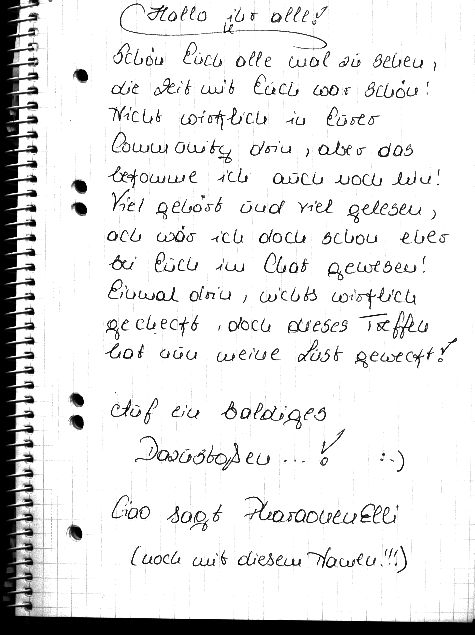 Hallo ihr alle!
Schön Euch alle mal zu sehen,
die Zeit mit Euch war schön!
Nicht wirklich in Eurer
Community drin, aber das
bekomme ich auch noch hin!
Viel gehört und viel gelesen,
ach wär ich doch schon eher
bei Euch im Chat gewesen!
Einmal drin, nichts wirklich
gecheckt, doch dieses Treffen
hat nun meine Lust geweckt!
Auf ein baldiges
Dazustoßen ... ! :-)
Ciao sagt PharaonenElli
(noch mit diesem Namen!!!)